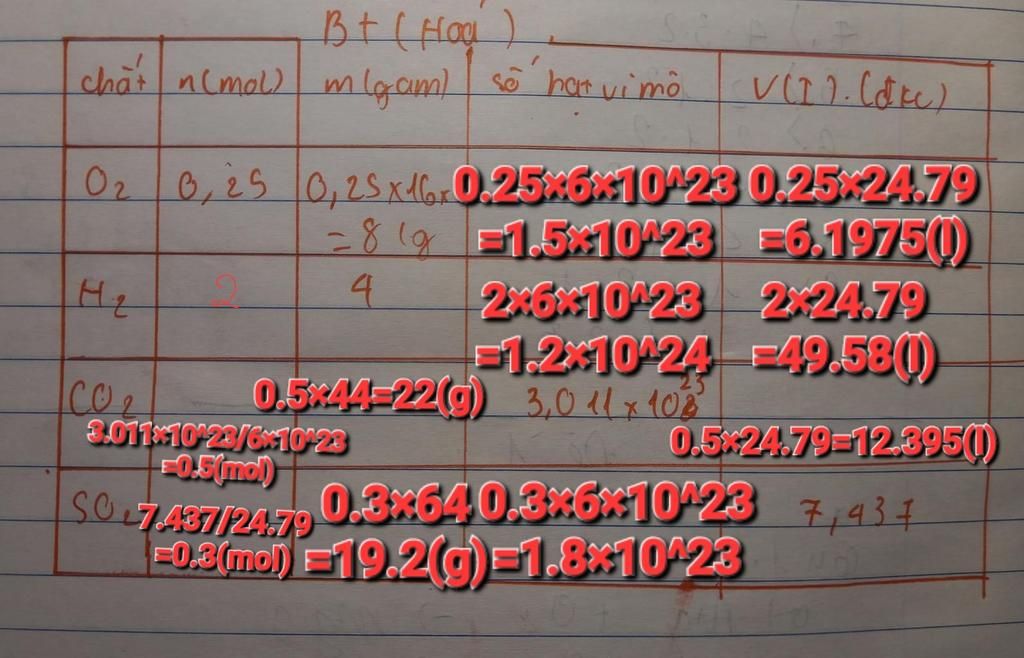 BT (Hoá)
chất n(mol) m(gam) số hạt vi mô V(I).(đkc)
O2 0,25 0,25x16x 0.25×6×10^23 0.25×24.79
= 8 (g =1.5×10^23 =6.1975(l)
H2 2 4 2×6×10^23 2×24.79
=1.2×10^24 =49.58(l)
CO2 0.5×44=22(g) 3,011 x 10 23
3.011×10^23/6×10^23 0.5×24.79=12.395(l)
=0.5(mol)
SO2 7.437/24.79 0.3×64 0.3×6×10^23 7,437
=0.3(mol) =19.2(g) =1.8×10^23